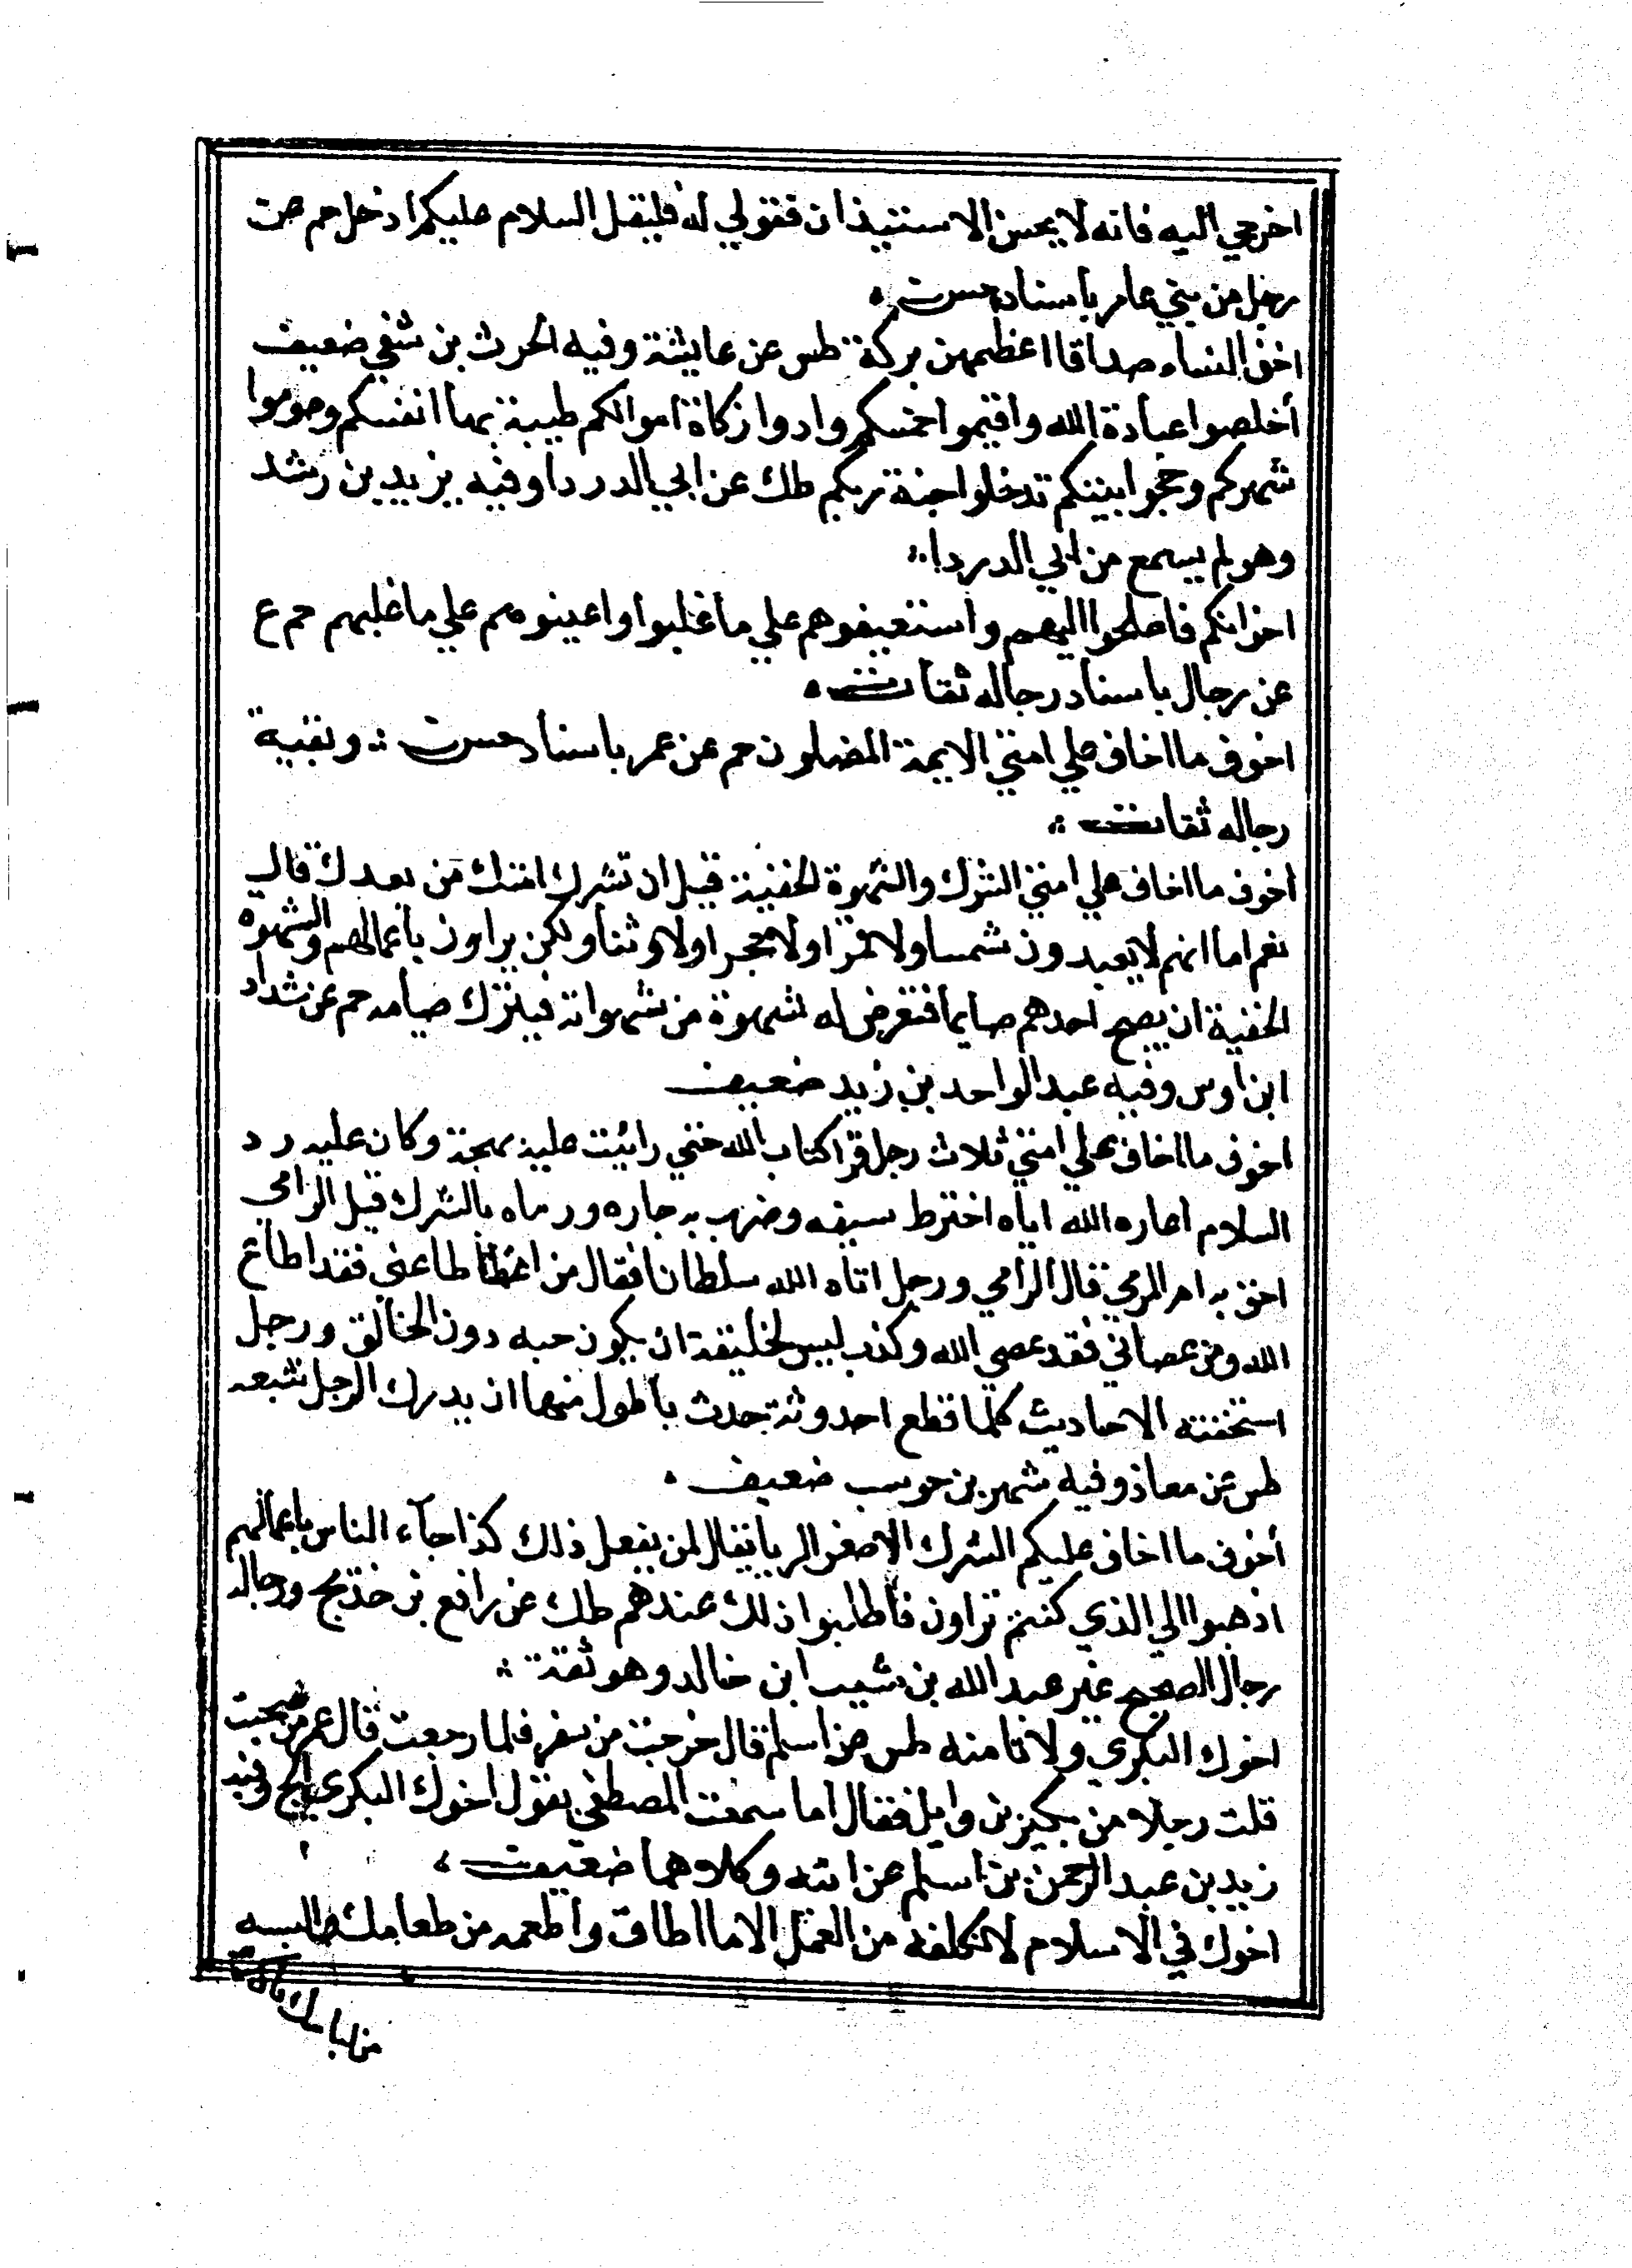 اخرجي اليه فانه لا يحسن الاستيذان فقولي له فليقل السلام عليكم ادخل حم عن
رجل من بني عامر باسناد حسن
اخف النساء صداقا اعظمهن بركة طس عن عايشة وفيه الحرث بن شفي ضعيف
أخلصوا عبادة الله واقيموا خمسكم وادوا زكاة اموالكم طيبة بها انفسكم وصوموا
شهركم وحجوا بيتكم تدخلوا جنة ربكم طك عن ابي الدردا وفيه يزيد بن رشد
وهو لم يسمع من ابي الدردا
اخوانكم فاصلحوا اليهم واستعينوهم علي ما غلبوا واعينوهم علي ما غلبهم حم ع
عن رجال باسناد رجاله ثقات
اخوف ما اخاف علي امتي الايمة المضلون حم عن عمر باسناد حسن وبقية
رجاله ثقات
أخوف ما اخاف علي امتي الشرك والشهوة الخفية قيل ان تشرك امتك من بعدك قال
نعم اما انهم لا يعبدون شمسا ولا قمرا ولا حجرا ولا وثنا ولكن يراون باعمالهم والشهوة
الخفية ان يصبح احدهم صايما فتعرض له شهوة من شهواته فيترك صيامه حم عن شداد
ابن اوس وفيه عبد الواحد بن زيد ضعيف
اخوف ما اخاف علي امتي ثلاث رجل قرا كتاب الله حتي رائيت عليه بهجته وكان عليه رد
السلام اعاره الله اياه اخترط سيفه وضرب به جاره ورماه بالشرك قيل الرامي
احق به ام المرمي قال الرامي ورجل اتاه الله سلطانا فقال من اطاعني فقد اطاع
الله ومن عصاني فقد عصي الله وكذب ليس لخليفة ان يكون حبه دون الخالق ورجل
استخفته الاحاديث كلما قطع احدوثة حدث باطول منها ان يدرك الرجل تبعه
طس عن معاذ وفيه شهر بن حوسب ضعيف
أخوف ما اخاف عليكم الشرك الاصغر الريا يقال لمن يفعل ذلك كذا جآء الناس باعمالهم
اذهبوا الي الذي كنتم تراون فاطلبوا ذلك عندهم طك عن رافع بن خديج ورجاله
رجال الصحيح غير عبد الله بن شبيب ابن خالد وهو ثقة
اخوك البكري ولا تامنه طس عن اسلم قال خرجت من سفر فلما رجعت قال عمر من صحبت
قلت رجلا من بكر بن وايل فقال اما سمعت المصطفي يقول اخوك البكري الخ وفيه
زيد بن عبد الرحمن بن اسلم عن ابيه وكلاهما ضعيف
اخوك في الاسلام لا تكلفه من العمل الا ما اطاق واطعمه من طعامك والبسه
من لباسك